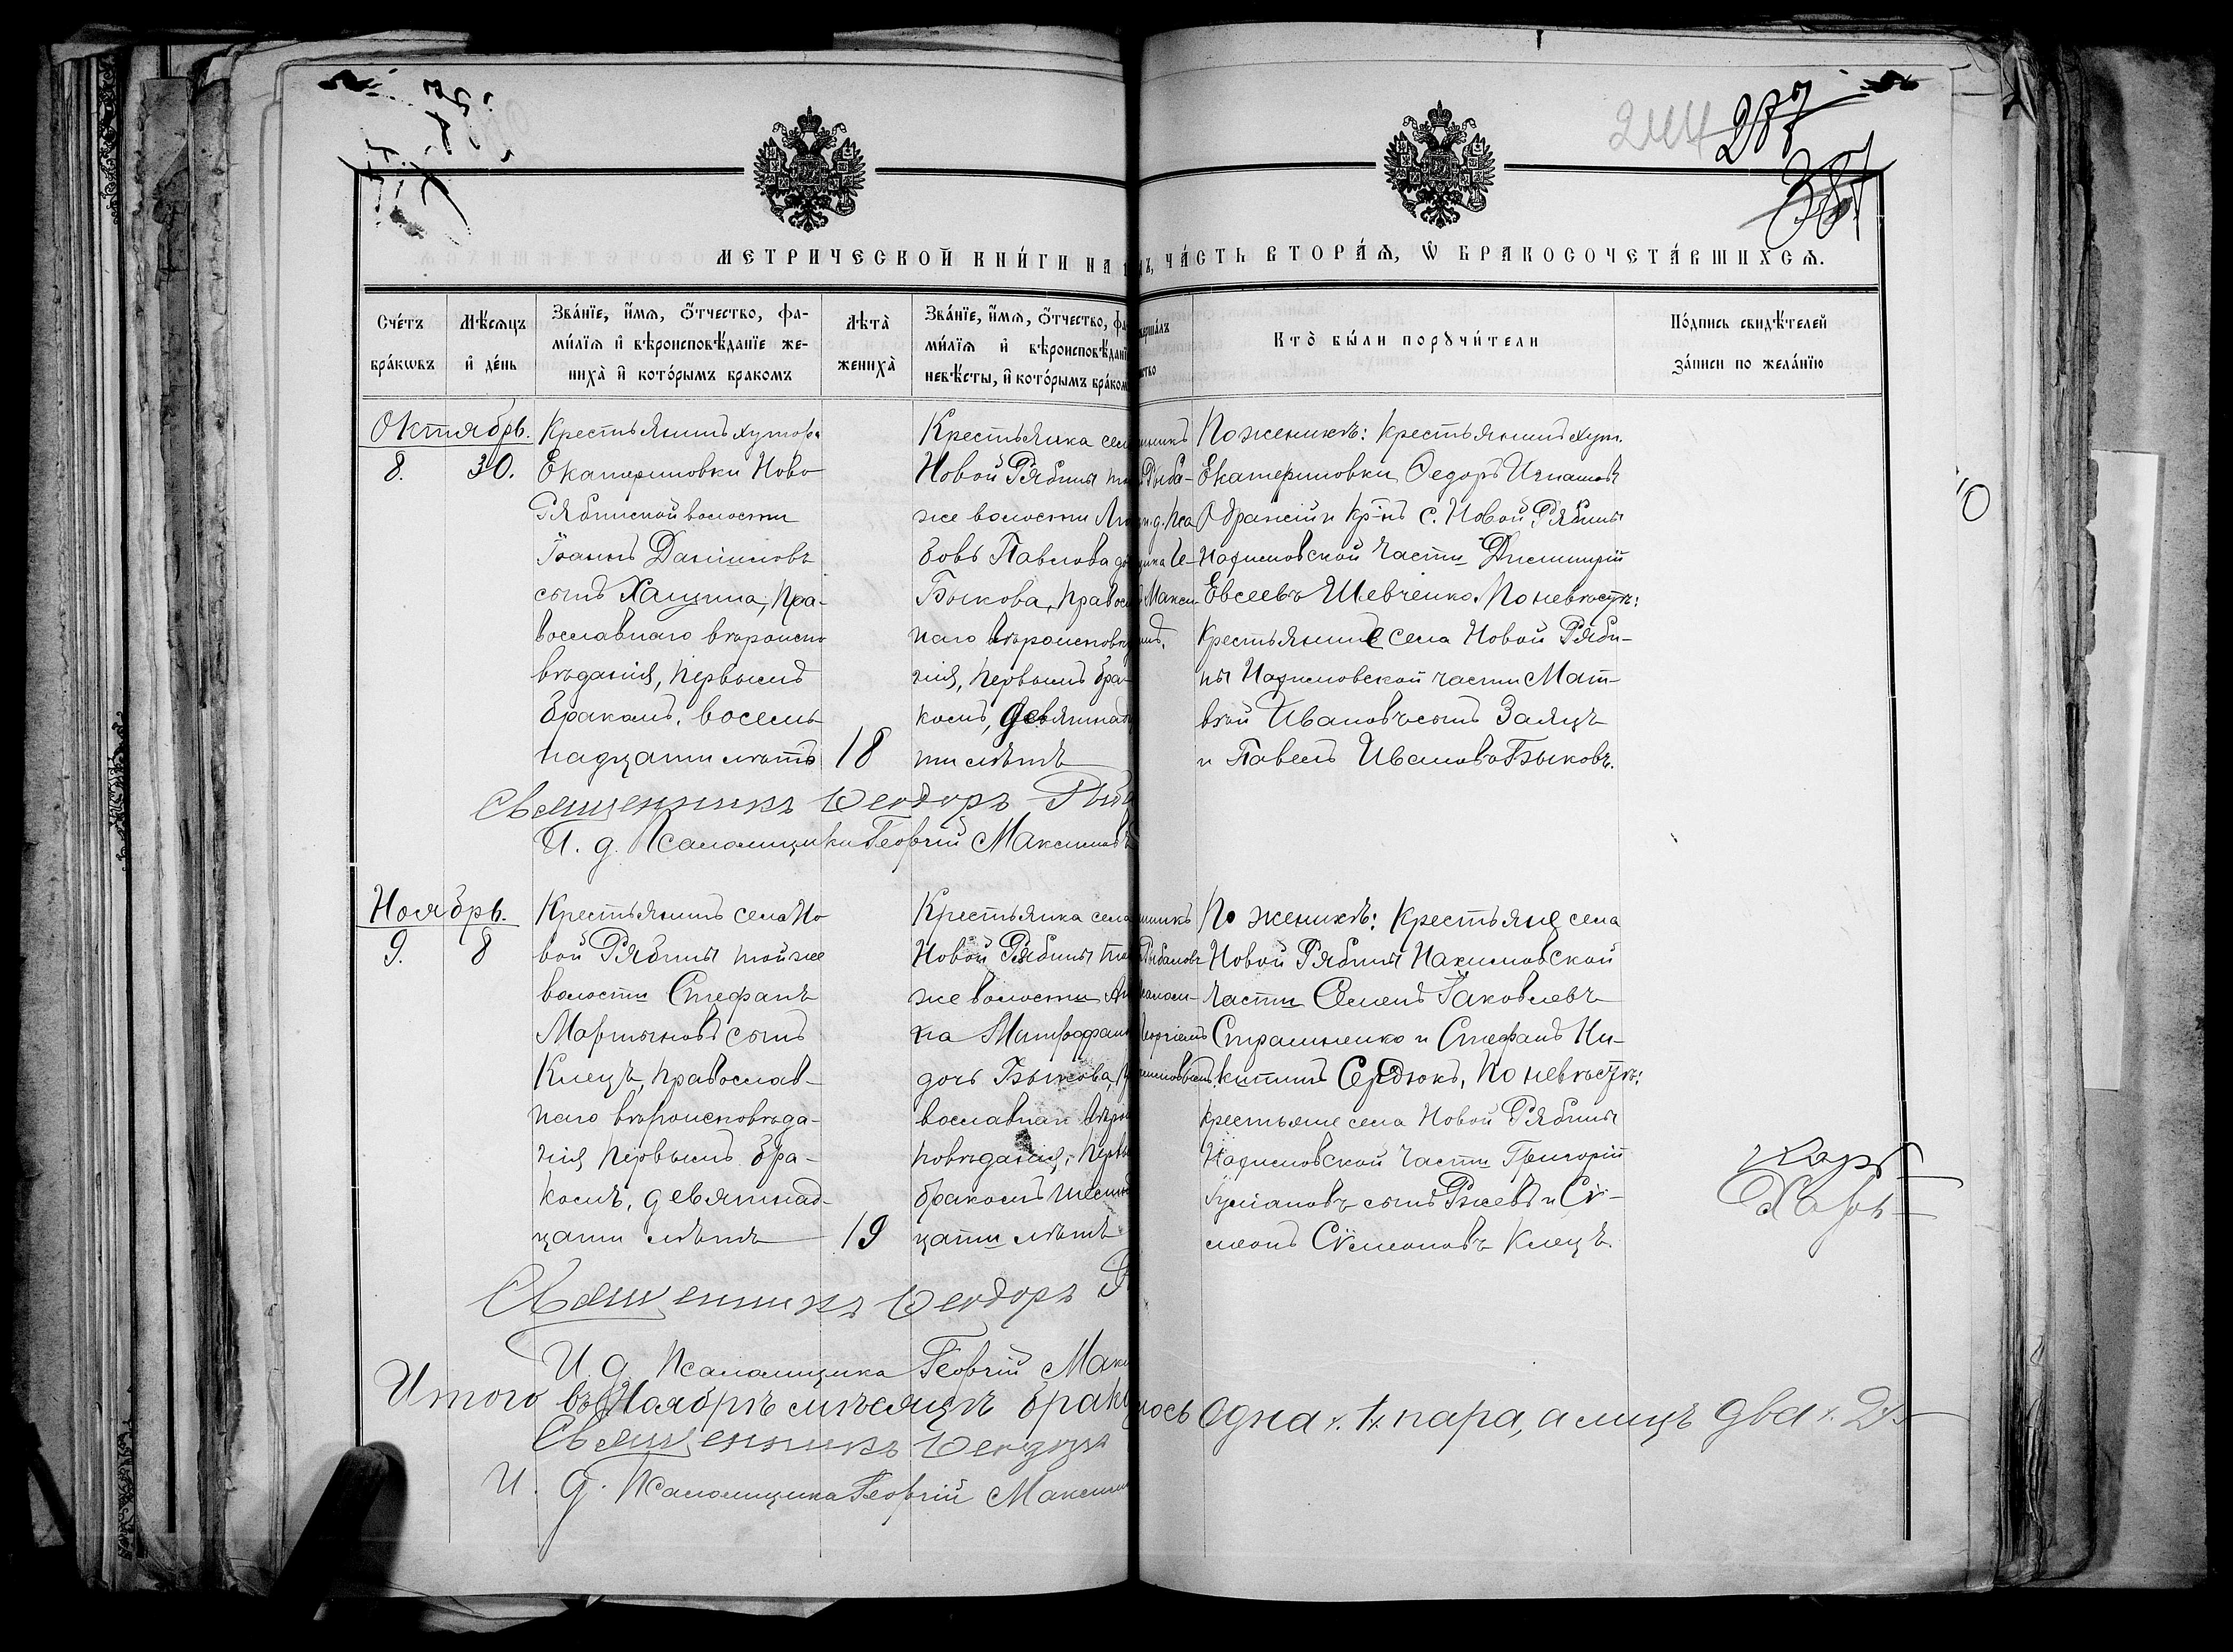 244 287
381
МЕТРИЧЕСКОЙ КНИ́ГИ НА
Ъ, ЧА́СТЬ ВТОРА́Ѧ, Ѡ҆ БРАКОСОЧЕТА́ВШИХСѦ.
Сче́тъ бра́кѡвъ
Мѣ́сѧцъ и҆ де́нь
Зва́нїе, и҆́мѧ, ѻ҆́тчество, фа-
ми́лїѧ и҆ вѣроисповѣ́данїе же-
ниха̀ и҆ кото́рымъ бракомъ
Лѣта̀ жениха̀
Зва́нїе, и҆́мѧ, ѻ҆́тчество, фа
ми́лїѧ и҆ вѣроисповѣ́данї
невѣ́сты, и҆ кото́рымъ бра́ком
вершáлъ
ство
Кто̀ бы́ли порꙋчи́тели
По́дпись свидѣ́телей
за́писи по жела́нїю
Октябрь.
8. 30.
Крестьянинъ хутора
Екатериновки Ново
Рябинской волости
Іоаннъ Даніиловъ
сынъ Хацина, Пра-
вославнаго вѣроиспо
вѣданія, первымъ
бракомъ. восем
надцати лѣтъ 18
Крестьянка села
Новой Рябины то
же волости Лю
бовь Павлова до
Быкова, Правос
наго вѣроисповѣ
нія, первымъ бра-
комъ, девятнад
ти лѣтъ
нникъ
Рыба-
и.д. Пса
щика Ге-
Макси-
По женихѣ: крестьянинъ хут.
Екатериновки Ѳедоръ Игнатовъ
и кр-нъ с. Новой Рябины
Нахимовской части Димитрій
Евсеевъ Шевченко. По невѣстѣ:
крестьяне села Новой Ряби-
ны Нахимовской части Мат-
вѣй Ивановъ сынъ Заяцъ
и Павелъ Ивановъ Быковъ.
Священникъ Ѳеодоръ Рыба
И. д. Псаломщика Георгій Максимовъ
Ноябрь.
9. 8
Крестьянинъ села Но
вой Рябины той же
волости Стефанъ
Мартыновъ сынъ
Клецъ, православ-
наго вѣроисповѣда-
нія первымъ бра-
комъ, девятнад-
цати лѣтъ 19
Крестьянка села
Новой Рябины то
же волости Ан
на Митрофан
дочь Быкова, Пр
вославнан вѣрои
повѣданія, первы
бракомъ шестна
цати лѣтъ
нникъ
Рыбаловъ
саломи-
Георгіемъ
симовымъ.
По женихѣ: Крестьяне села
Новой Рябины Нахимовской
части Семенъ Іаковлевъ
Страшненко и Стефанъ Ни-
китинъ Сердюкъ, По невѣстѣ:
крестьяне села Новой Рябины
Нахимовской части Григорій
сынъ и Сѵ-
меонъ Сѵмеоновъ Клецъ.
Священникъ Ѳеодоръ Р
И. д. Псаломщика Георгій Макси
Итого въ Ноябрѣ мѣсяцѣ брак
лось одна 1 пара, а лицъ два 2
Священникъ Ѳеодоръ
И. д. Псаломщика Георгій Максим